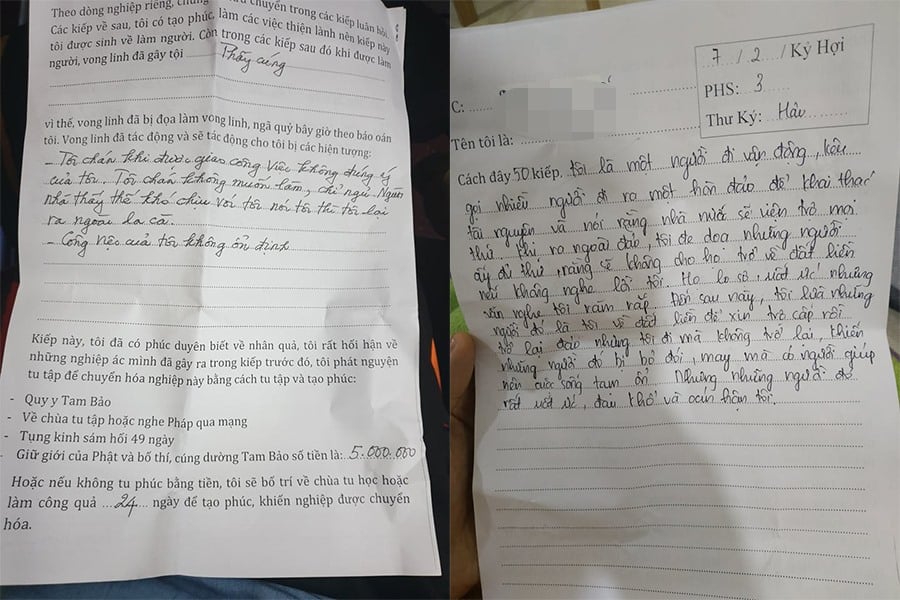 Theo dòng nghiệp riêng, chúng chuyển trong các kiếp luân hồi.
Các kiếp về sau, tôi có tạo phúc, làm các việc thiện lành nên kiếp này
tôi được sinh về làm người. Còn trong các kiếp sau đó khi được làm
người, vong linh đã gây tội Thầy cúng
vì thế, vong linh đã bị đọa làm vong linh, ngã quỷ bây giờ theo báo oán
tôi. Vong linh đã tác động và sẽ tác động cho tôi bị các hiện tượng:
- Tôi chán khi được giao công việc không đúng ý
của tôi. Tôi chán không muốn làm, chỉ ngủ. Người
nhà thấy thế khó chịu với tôi nói tôi thì tôi lại
ra ngoài la cà.
- Công việc của tôi không ổn định
Kiếp này, tôi đã có phúc duyên biết về nhân quả, tôi rất hối hận về
những nghiệp ác mình đã gây ra trong kiếp trước đó, tôi phát nguyện
tu tập để chuyển hóa nghiệp này bằng cách tu tập và tạo phúc:
- Quy y Tam Bảo
- Về chùa tu tập hoặc nghe Pháp qua mạng
- Tụng kinh sám hối 49 ngày
- Giữ giới của Phật và bố thí, cúng dường Tam Bảo số tiền là: 5.000.000
Hoặc nếu không tu phúc bằng tiền, tôi sẽ bố trí về chùa tu học hoặc
làm công quả 24 ngày để tạo phúc, khiến nghiệp được chuyển
hóa.
7 / 2 / Kỷ Hợi
PHS: 3
Thư Ký: Hảu
C:
Tên tôi là:
Cách đây 50 kiếp, tôi là một người đi vận động, kêu
gọi nhiều người đi ra một hòn đảo để khai thác
tài nguyên và nói rằng nhà nước sẽ viện trợ mọi
thứ. Khi ra ngoài đảo, tôi đe dọa những người
ấy đủ thứ, rằng sẽ không cho họ trở về đất liền
nếu không nghe lời tôi. Họ lo sợ, uất ức nhưng
vẫn nghe tôi răm rắp. Đến sau này, tôi lừa những
người đó là tôi về đất liền để xin trợ cấp rồi
trở lại đảo nhưng tôi đi mà không trở lại, khiến
những người đó bị bỏ đói, may mà có người giúp
nên cuộc sống tạm ổn. Nhưng những người đó
rất uất ức, đau khổ và oán hận tôi.